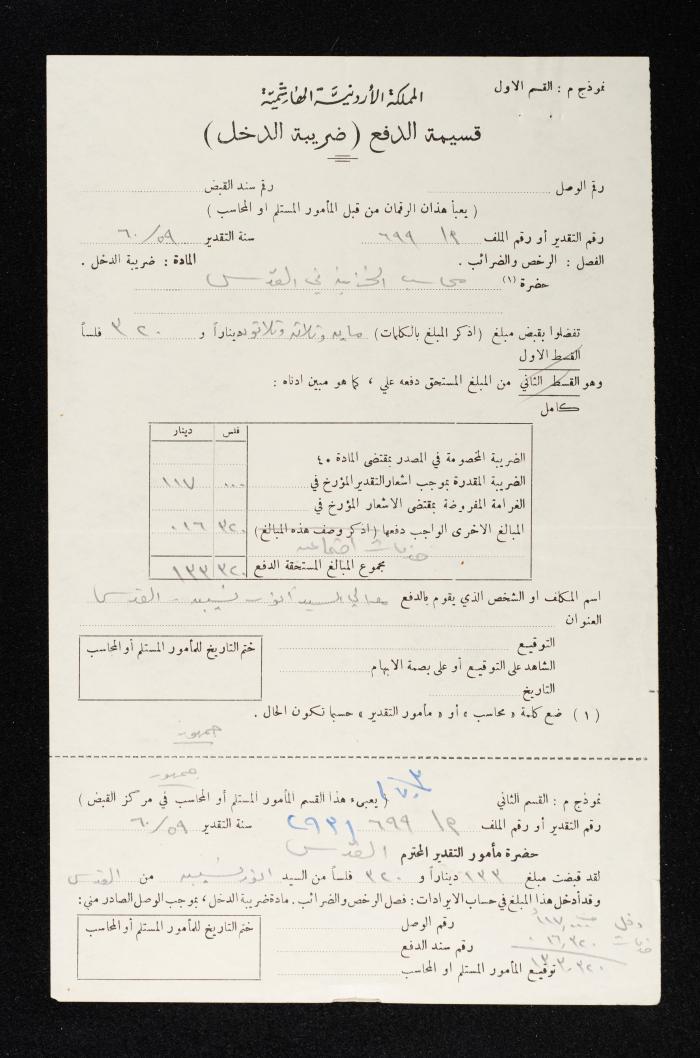 نموذج م : القسم الاول
المملكة الأردنية الهاشمية
قسيمة الدفع (ضريبة الدخل)
رقم الوصل رقم سند القبض
( يعبأ هذان الرقمان من قبل المأمور المستلم او المحاسب )
رقم التقدير أو رقم الملف ٦٩٩ سنة التقدير ٦٠/٥٩
الفصل : الرخص والضرائب . المادة : ضريبة الدخل .
حضرة (١) محاسب الخزينة في القدس
تفضلوا بقبض مبلغ (اذكر المبلغ بالكلمات) مايه وثلاثه وثلاثون ديناراً و ٣٢٠ فلساً
القسط الاول
وهو القسط الثاني من المبلغ المستحق دفعه علي ، كما هو مبين ادناه :
كامل
فلس دينار
الضريبة المخصومة في المصدر بمقتضى المادة ٤٠
الضريبة المقدرة بموجب اشعار التقدير المؤرخ في ٠٠٠ ١١٧
الغرامة المفروضة بمقتضى الاشعار المؤرخ في
المبالغ الاخرى الواجب دفعها (اذكر وصف هذه المبالغ) ٣٢٠ ٠١٦
خدمات اجتماعيه
مجموع المبالغ المستحقة الدفع ٣٢٠ ١٣٣
اسم المكلف او الشخص الذي يقوم بالدفع معالي السيد انور نسيبه - القدس
العنوان
التوقيع
ختم التاريخ للمأمور المستلم أو المحاسب
الشاهد على التوقيع أو على بصمة الابهام
التاريخ
(١) ضع كلمة « محاسب » أو « مأمور التقدير » حسبما تكون الحال .
نموذج م : القسم الثاني ( يعبىء هذا القسم المأمور المستلم أو المحاسب في مركز القبض )
رقم التقدير أو رقم الملف ٦٩٩ سنة التقدير ٦٠/٥٩
حضرة مأمور التقدير المحترم القدس
لقد قبضت مبلغ ١٣٣ ديناراً و ٣٢٠ فلساً من السيد انور نسيبه من القدس
وقد أدخل هذا المبلغ في حساب الايرادات : فصل الرخص والضرائب . مادة ضريبة الدخل ، بموجب الوصل الصادر مني :
رقم الوصل
ختم التاريخ للمأمور المستلم أو المحاسب
رقم سند الدفع
توقيع المأمور المستلم او المحاسب
دخل ١١٧,٠٠٠
خدمات ٠١٦,٣٢٠
١٣٣,٣٢٠